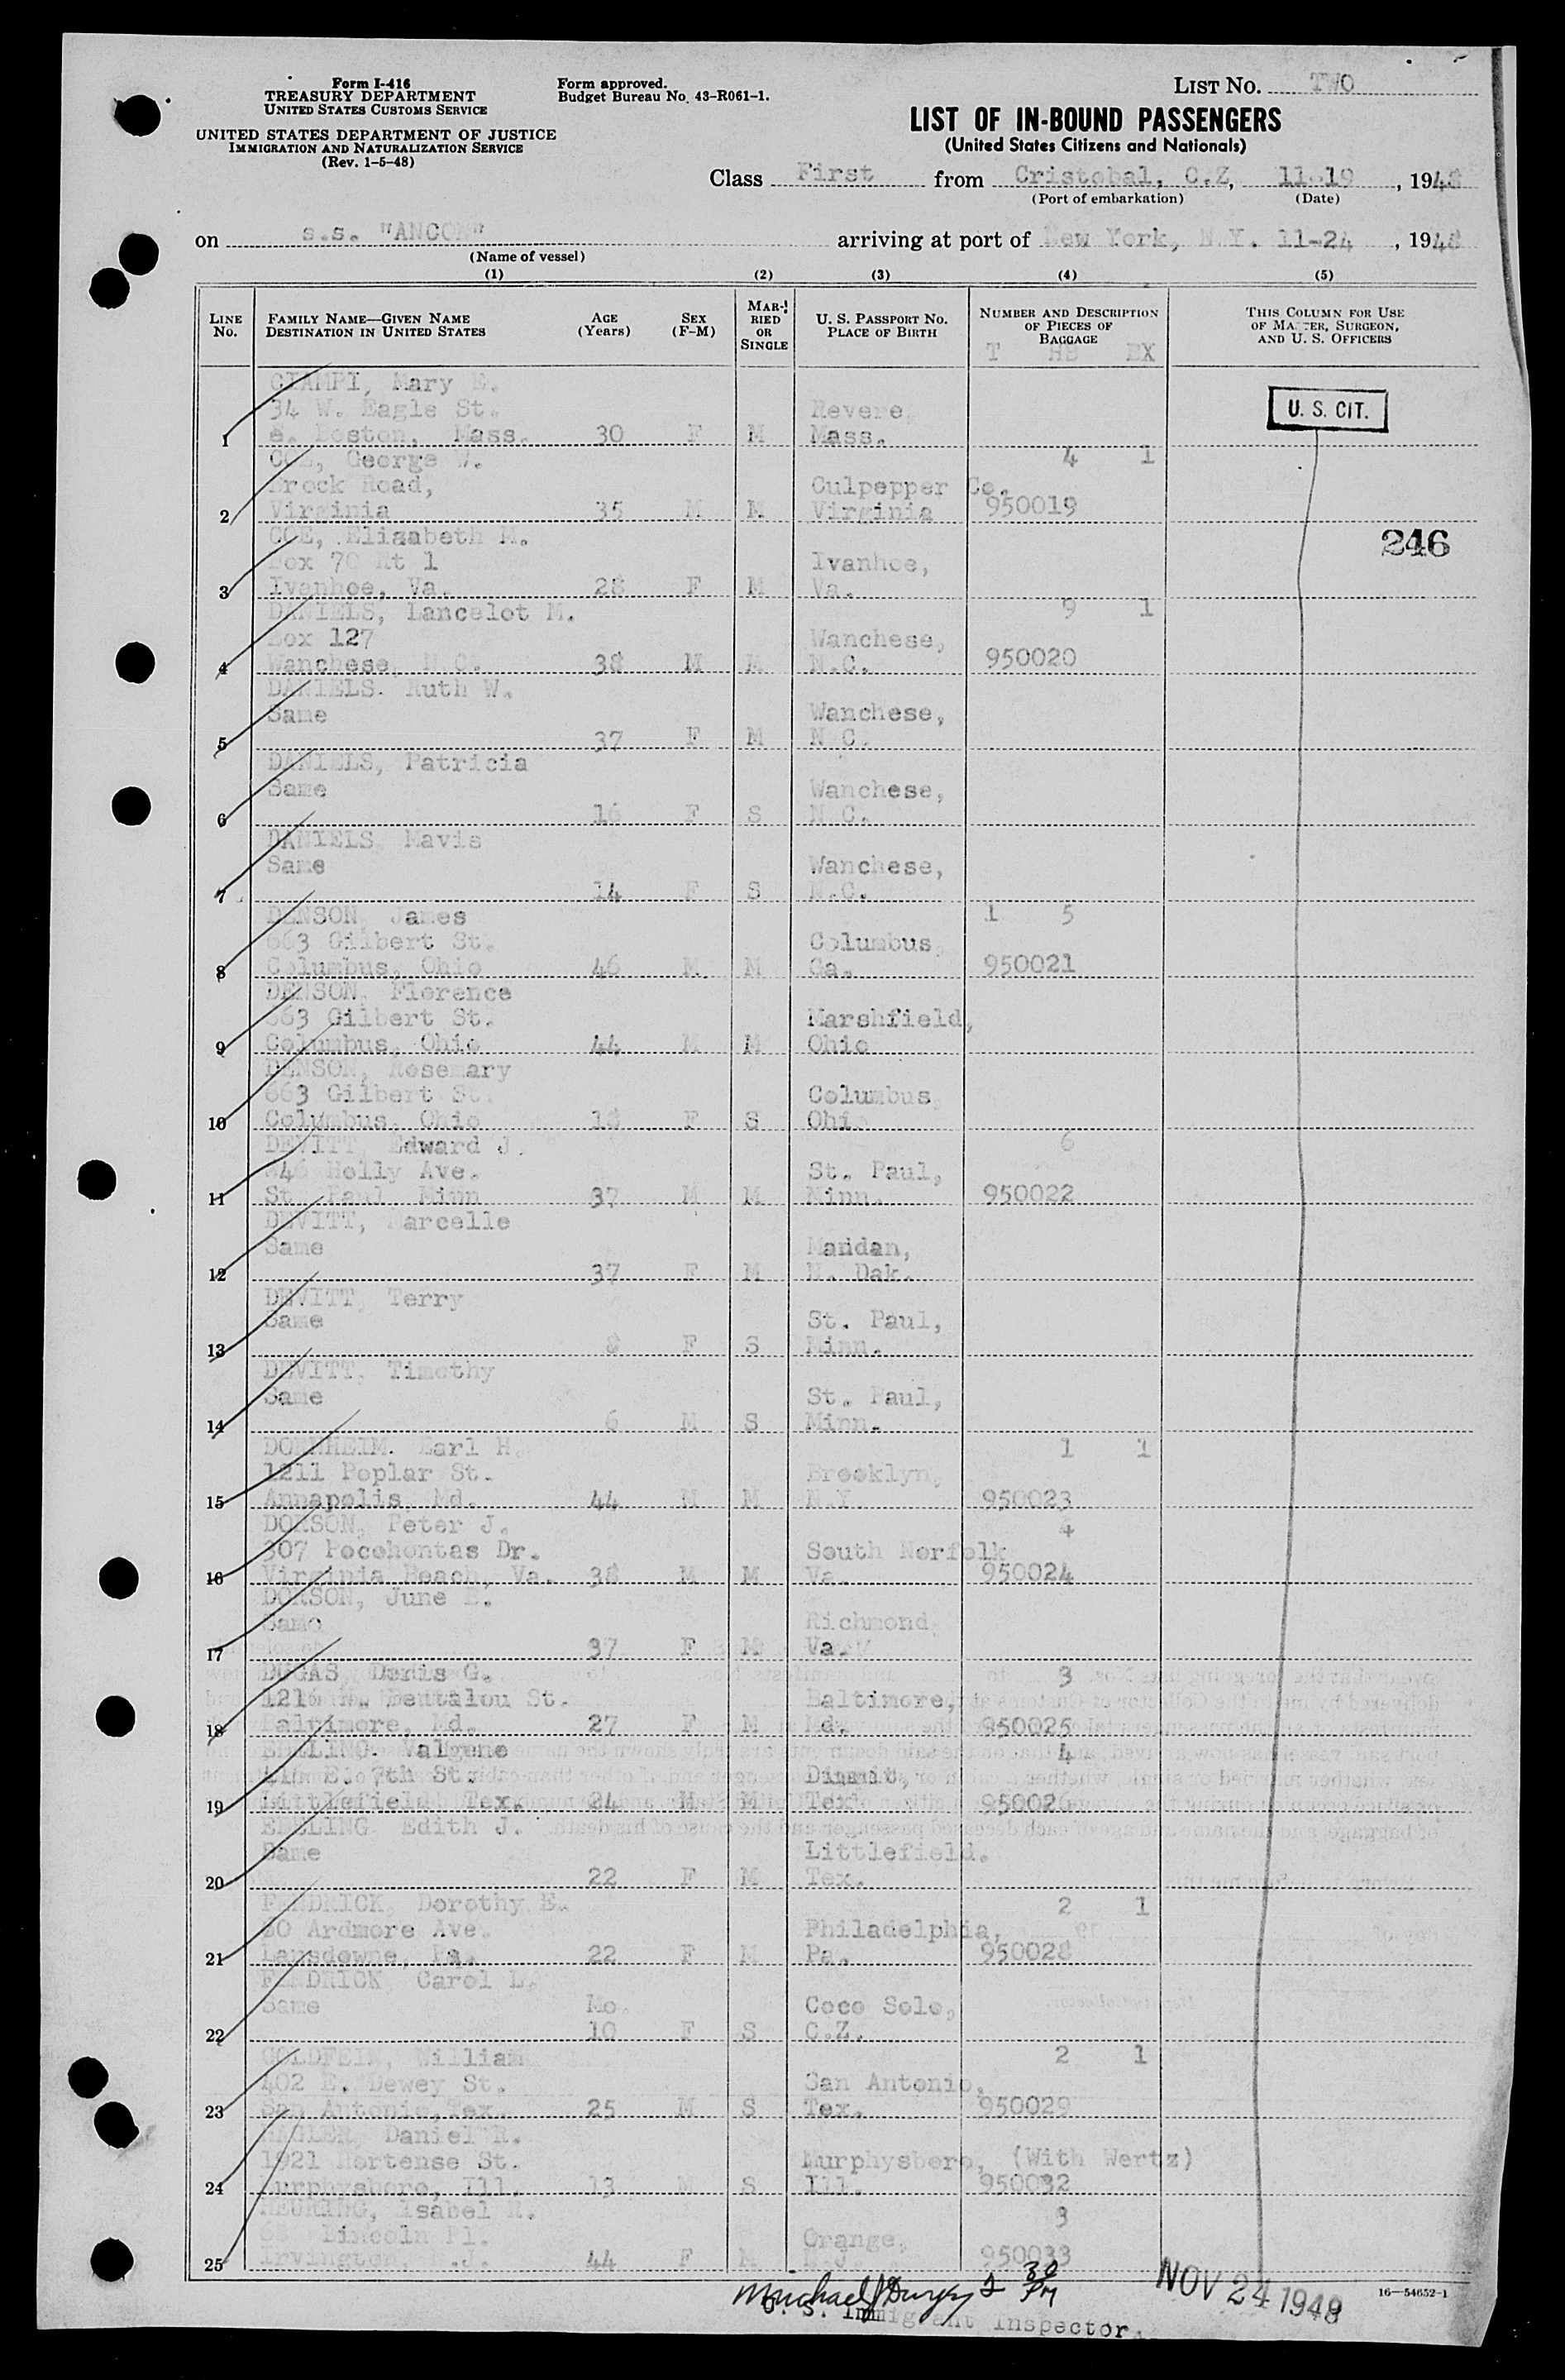 Form I-416
TREASURY DEPARTMENT
UNITED STATES CUSTOMS SERVICE
UNITED STATES DEPARTMENT OF JUSTICE
IMMIGRATION AND NATURALIZATION SERVICE
(Rev. 1-5-48)
Form approved.
Budget Bureau No. 43-R061-1.
LIST NO. TWO
LIST OF IN-BOUND PASSENGERS
(United States Citizens and Nationals)
Class First from Cristobal, C.Z, 11-19, 1948
(Port of embarkation) (Date)
on s.s. "ANCON" arriving at port of New York, N.Y. 11-24, 1948
(Name of vessel)
(1) (2) (3) (4) (5)
LINE NO. FAMILY NAME—GIVEN NAME DESTINATION IN UNITED STATES AGE (Years) SEX (F-M) MARRIED OR SINGLE U. S. PASSPORT NO. PLACE OF BIRTH NUMBER AND DESCRIPTION OF PIECES OF BAGGAGE THIS COLUMN FOR USE OF MASTER, SURGEON, AND U. S. OFFICERS
T HB EX
CIAMPI, Mary E.
34 W. Eagle St. Revere, U. S. CIT.
1 e. Boston, Mass. 30 F M Mass.
COE, George W. 4 1
Brock Road, Culpepper Co.
2 Virginia 35 M M Virginia 950019
COE, Elizabeth M. 246
Box 70 Rt 1 Ivanhoe,
3 Ivanhoe, Va. 28 F M Va.
DANIELS, Lancelot M. 9 1
Box 127 Wanchese,
4 Wanchese, N.C. 38 M M N.C. 950020
DANIELS. Ruth W.
Same Wanchese,
5 37 F M N.C.
DANIELS, Patricia
Same Wanchese,
6 16 F S N.C.
DANIELS, Mavis
Same Wanchese,
7 14 F S N.C.
DENSON, James 1 5
663 Gilbert St. Columbus,
8 Columbus, Ohio 46 M M Ga. 950021
DENSON, Florence
663 Gilbert St. Marshfield,
9 Columbus, Ohio 44 M M Ohio
DENSON, Rosemary
663 Gilbert St. Columbus,
10 Columbus, Ohio 18 F S Ohi
DEVITT, Edward J. 6
Holly Ave. St. Paul,
11 St. Paul, Minn 37 M M Minn. 950022
DEVITT, Marcelle
Same Mandan,
12 37 F M N. Dak.
DEVITT, Terry
Same St. Paul,
13 8 F S Minn.
DEVITT, Timothy
Same St. Paul,
14 6 M S Minn.
DORNHEIM. Earl H. 1 1
1211 Poplar St. Brooklyn,
15 Annapolis, Md. 44 M M N.Y. 950023
DORSON, Peter J. 4
307 Pocohontas Dr. South Norfolk
16 Virginia Beach, Va. 38 M M Va. 950024
DORSON, June E.
Same Richmond,
17 37 F M Va.
DUGAS, Doris G. 3
1216 N. Bentalou St. Baltimore,
18 Baltimore, Md. 27 F M Md. 950025
Valgene 4
E. 7th St. Dimmit,
19 Littlefield, Tex. 24 M M Tex 950026
Edith J.
Same Littlefield.
20 22 F M Tex.
FENDRICK, Dorothy E. 2 1
30 Ardmore Ave. Philadelphia,
21 Lansdowne, Pa. 22 F M Pa. 950028
FENDRICK, Carol L.
Same Mo. Coco Solo,
22 10 F S C.Z.
GOLDFEIN, William 2 1
402 E. Dewey St. San Antonio,
23 San Antonio, Tex. 25 M S Tex. 950029
Daniel R.
1921 Hortense St. Murphysboro, (With Wertz)
24 Murphysboro, Ill. 13 M S Ill. 950032
HEURING, Isabel R. 3
Lincoln Pl. Orange,
25 Irvington, N.J. 44 F M N.J. 950033
Michael J 2 30 PM
U. S. Immigrant Inspector.
NOV 24 1948
16—54652-1